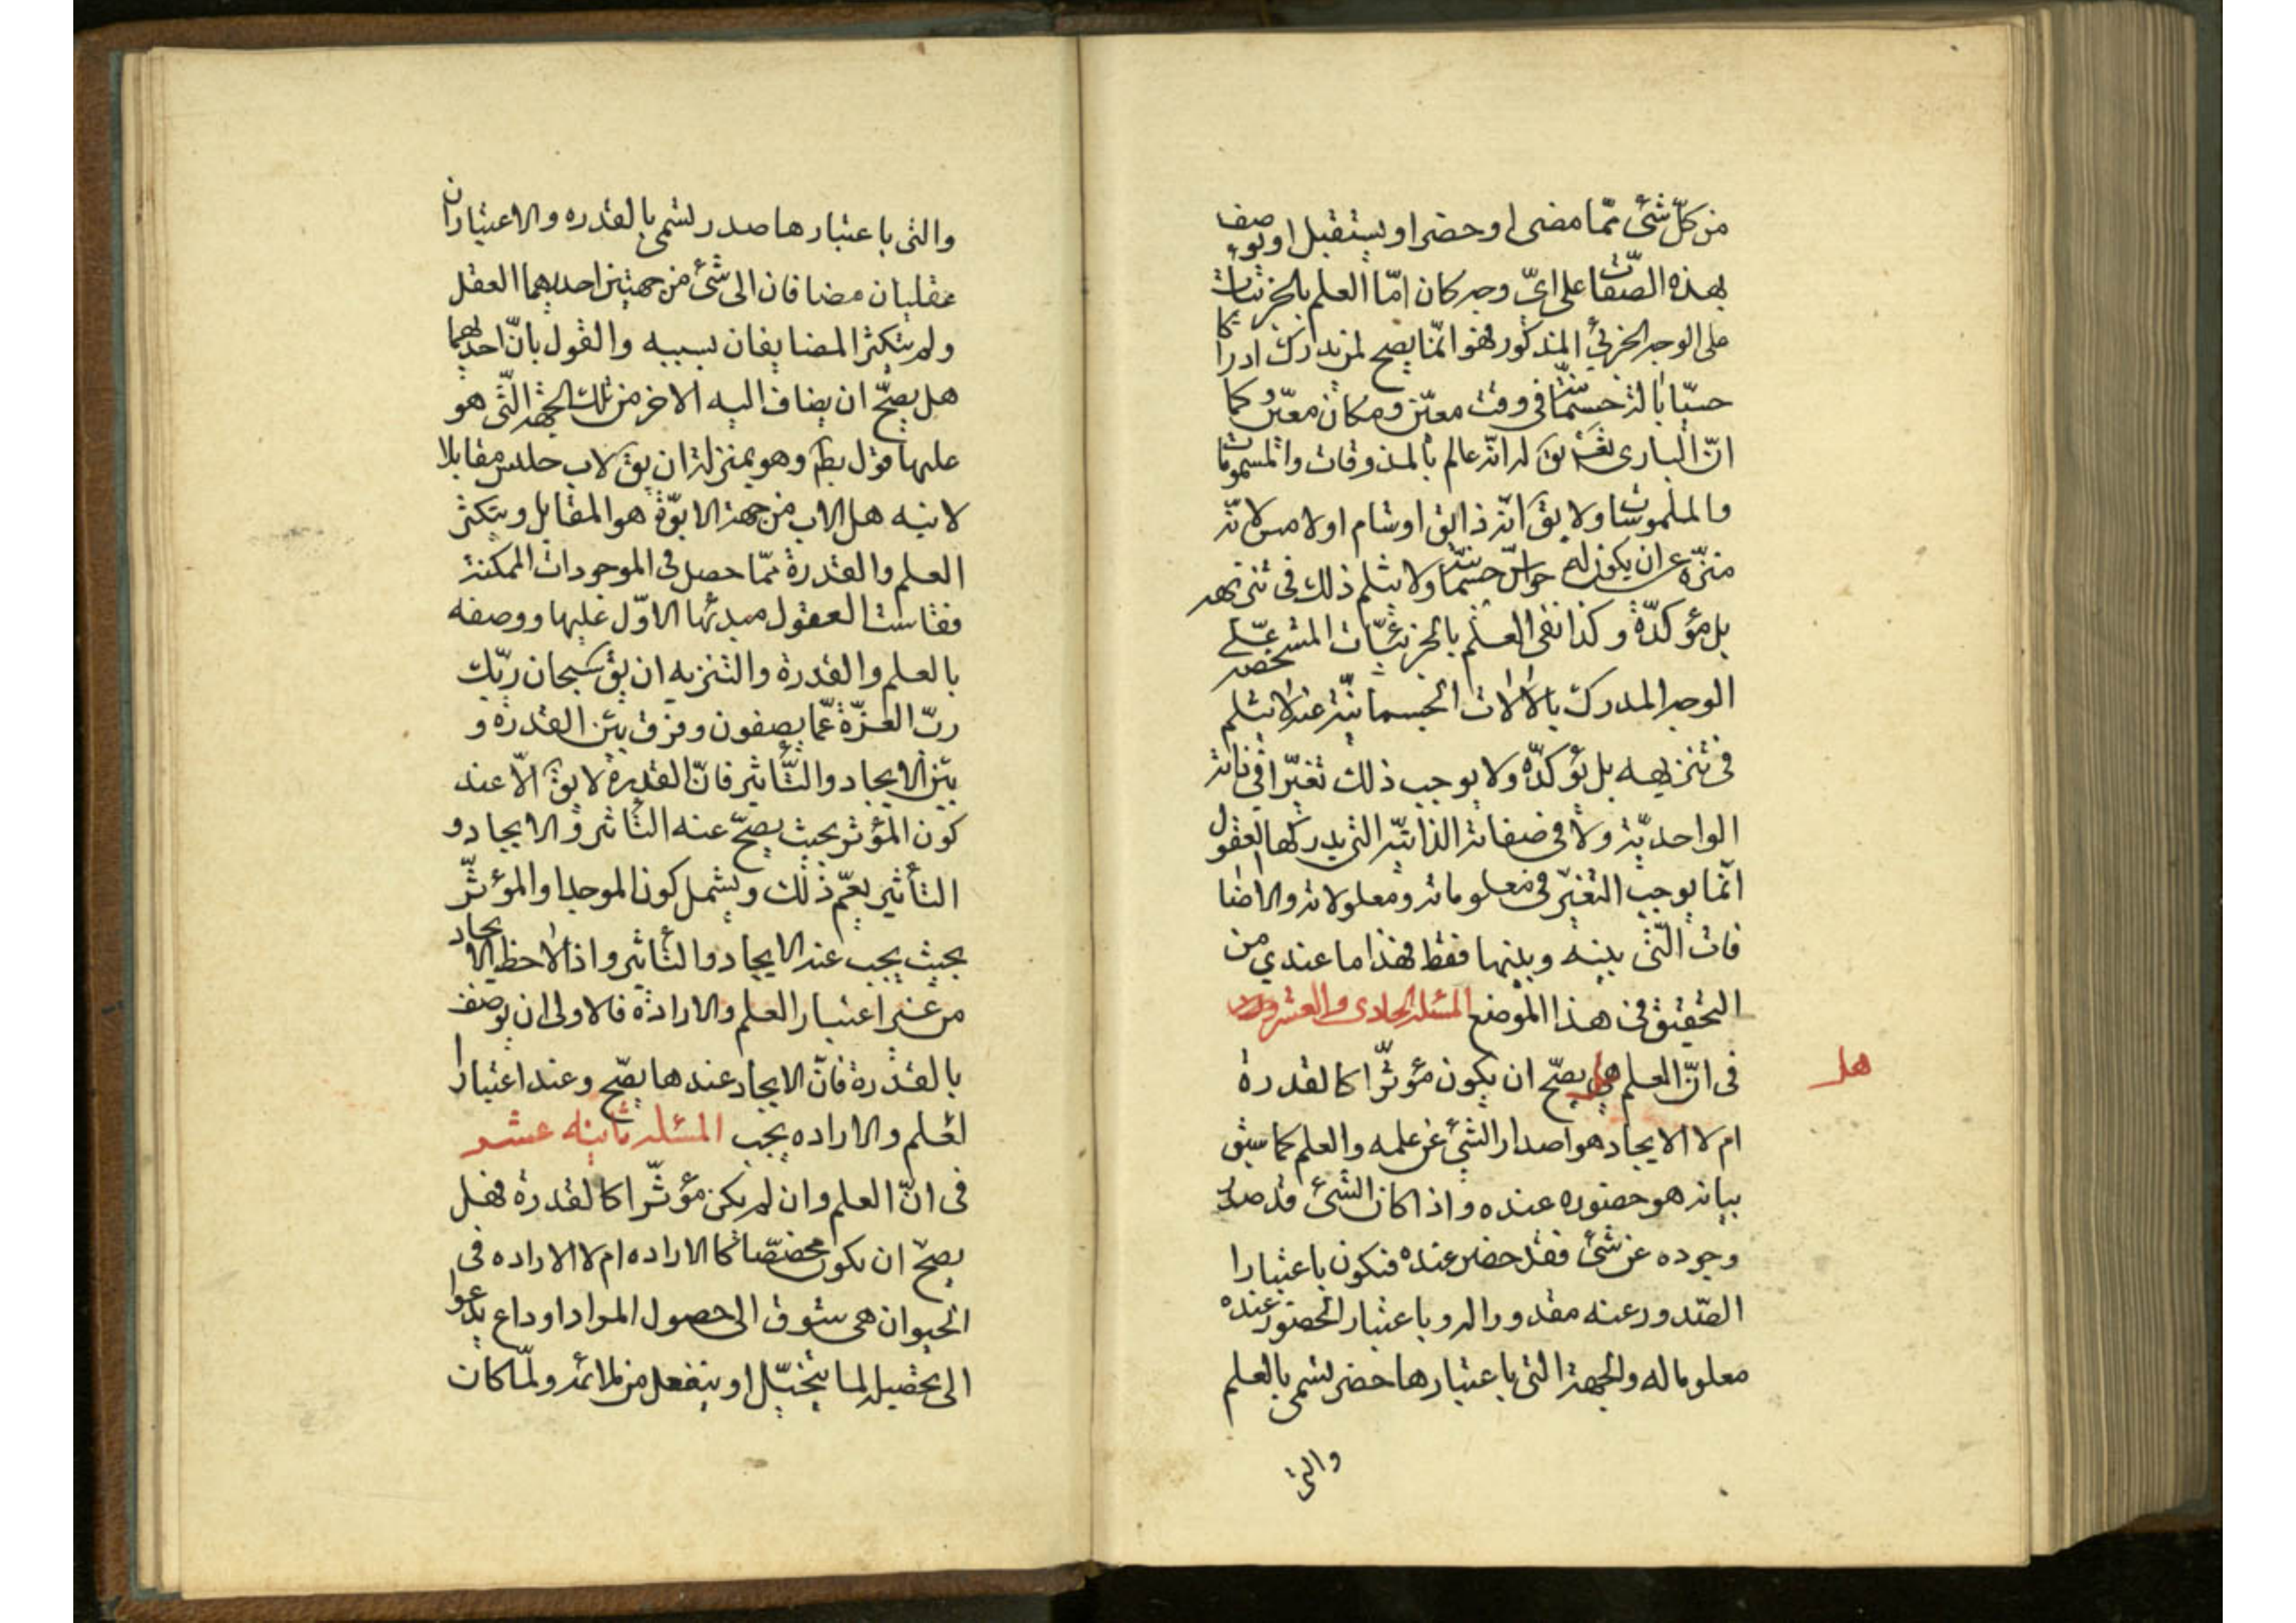 من كلّ شئ ممّا مضى او حضر او يستقبل او يوصف
بهذه الصّفات على اىّ وجه كان امّا العلم بالجزئيات
على الوجه الجزئى المذكور فهو انّما يصح لمن يدرك ادراكا
حسيّا بالة جسمانيّة فى وقت معيّن ومكان معيّن وكما
انّ البارى تعـ يقـ له انّه عالم بالمذوقات والمشمومات
والملموسات ولا يقـ انّه ذائق او شام او لامس لانّه
منزّه عن ان يكون له حواسّ جسمانيّة ولا يثلم ذلك فى تنزيهه
بل مؤكدّة وكذا نفى العلم بالجزئيّات المتشخصه على
الوجه المدرك بالالات الجسمانيّة عنه لا يثلم
فى تنزيهه بل يؤكدّه ولا يوجب ذلك تغيّرا فى ذاته
الواحديّة ولا فى صفاته الذاتيّه التى يدركها العقول
انّما يوجب التغيّر فى معلوماته ومعلولاته والاضا
فات الّتى بينه وبينها فقط فهذا ما عندي من
التحقيق فى هذا الموضع المسئله الحادى والعشرون
هل
فى انّ العلم هل يصحّ ان يكون مؤثّرا كالقدرة
ام لا الايجاد هو اصدار الشئ عن علمه والعلم كما سبق
بيانه هو حضوره عنده واذا كان الشئ قد صدر
وجوده عن شئ فقد حضر عنده فيكون باعتبارا
الصّدور عنه مقدورا له وباعتبار الحضور عنده
معلوما له والجهة التى باعتبارها حضر يسمى بالعلم
والتى
والتى باعتبارها صدر يسمى بالقدره والاعتباران
عقليان مضافان الى شئ من جهتين احديهما العقل
ولم يتكثر المضايفان بسببه والقول بانّ احديهما
هل يصحّ ان يضاف اليه الاخر من تلك الجهة الّتى هو
عليها قول بطـ وهو بمنزلة ان يقـ لاب جلس مقابلا
لابنه هل الاب من جهة الابوّة هو المقابل ويتكثر
العلم والقدرة ممّا حصل فى الموجودات الممكنة
فقاست العقول مبدئها الاوّل عليها ووصفه
بالعلم والقدرة والتنزيه ان يقـ سبحان ربّك
ربّ العزّة عمّا يصفون وفرق بين القدرة و
بين الايجاد والتّأثير فانّ القدرة لا يقـ الاّ عند
كون المؤثر بحيث يصحّ عنه التأثير والايجاد و
التأثير يعمّ ذلك ويشمل كون الموجد او المؤثّر
بحيث يجب عنه الايجاد والتأثير واذا لاحظ الايجاد
من غير اعتبار العلم والارادة فالاولى ان يوصف
بالقدرة فانّ الايجاد عندها يصّح وعند اعتبارا
لعلم والاراده يجب المسئله ثانيه عشر
فى انّ العلم وان لم يكن مؤثّرا كالقدرة فهل
يصحّ ان يكون مخصّصا كالاراده ام لا الاراده فى
الحيوان هى شوق الى حصول المراد او داع يدعوا
الى تحصيله لما يتخيّل او ينفعل من ملائمه ولمّا كان